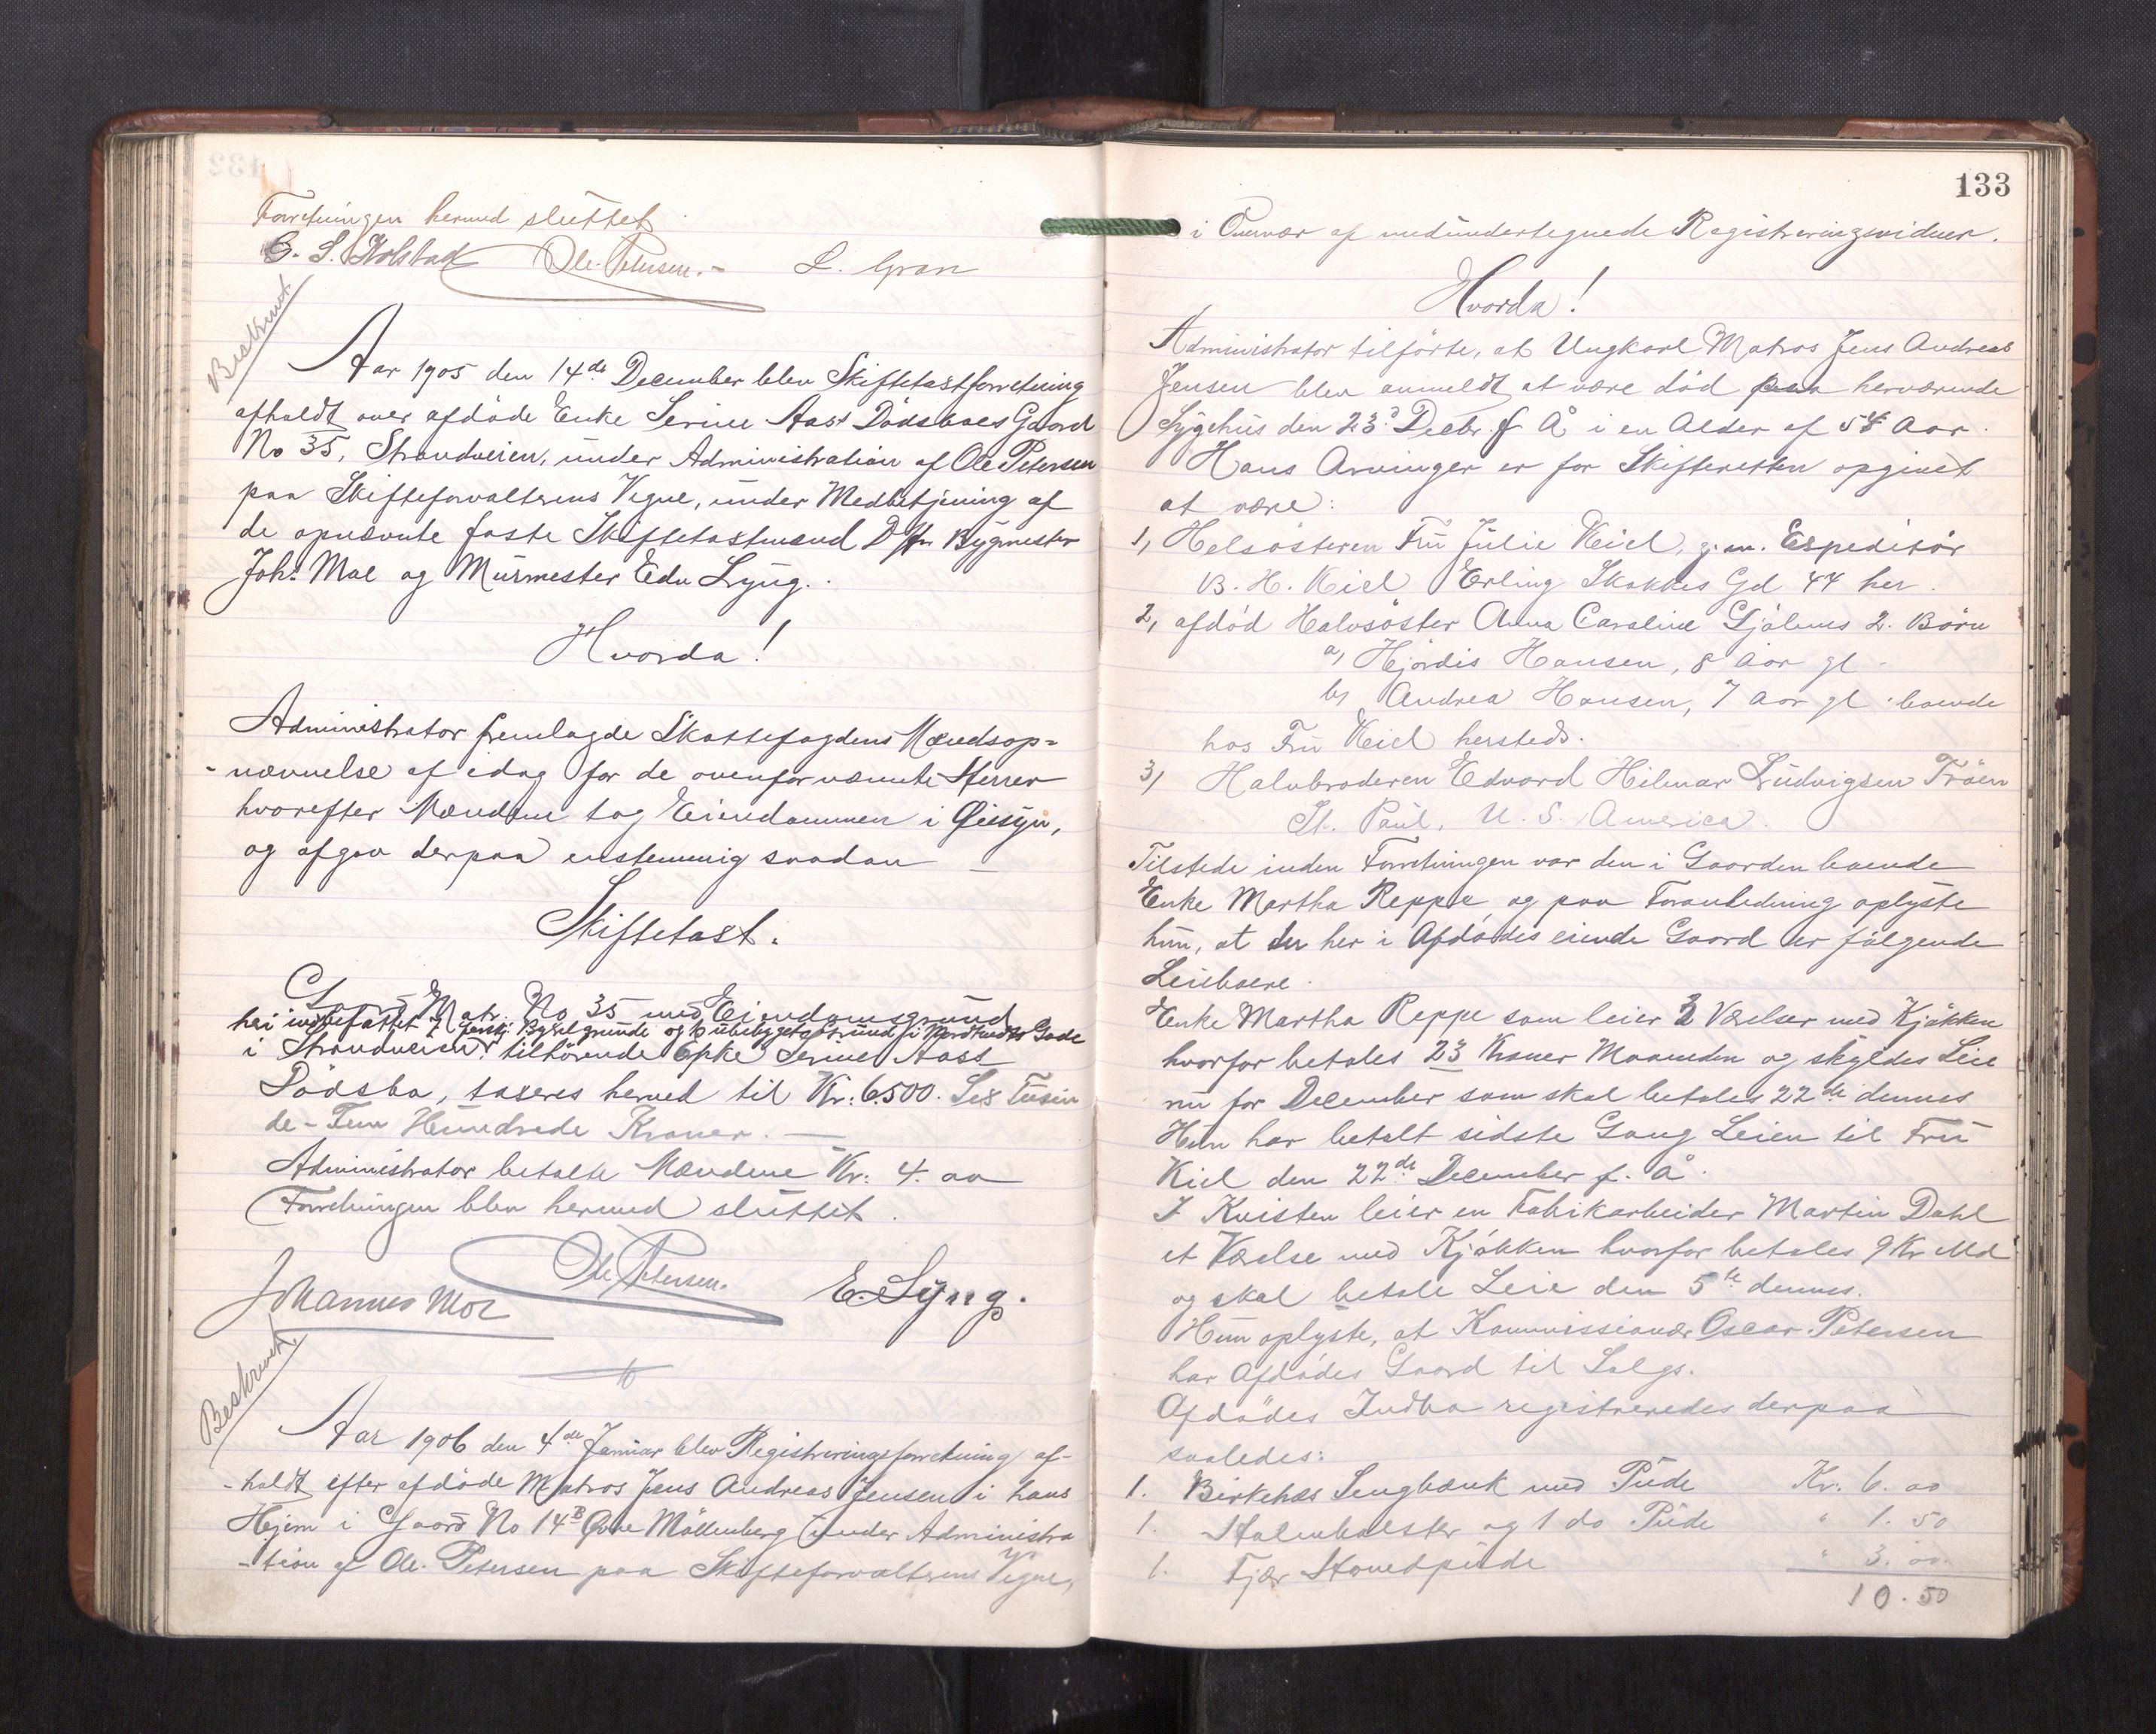 Forretningen hermed sluttet
G. S. Holstad Ole Petersen.- L. Gran
Beskrevet
Aar 1905 den 14de December blev Skiftetaxtforretning
afholdt over afdøde Enke Serine Aas's Dødsboes Gaard
No 35, Strandveien, under Administration af Ole Petersen
paa Skifteforvalterens Vegne, under Medbetjening af
de opnævnte faste Skiftetaxtmænd DHrr Bygmester
Johs Moe og Murmester Edv Lyng.
Hvorda!
Administrator fremlagde Skattefogdens Mændsop=
-nævnelse af idag for de ovenfor nævnte Herrer
hvorefter Mændene tog Eiendommen i Øiesyn,
og afgav derpaa enstemmig saadan
Skiftetaxt.
Gaard Matr. No 35 med Eiendomsgrund
heri indbefattet 7 Byselgrunde og ubebygget Grund i Gade
i Strandveien tilhørende Enke Serine Aass
Dødsbo, taxeres herved til Kr: 6.500. Sex Tusin
de-Fem Hundrede Kroner. —
Administrator betalte Mændene Kr: 4. 00
Forretningen blev hermed sluttet.
Johannes Moe Ole Petersen. E. Lyng.
Beskrevet
Aar 1906 den 4de Januar blev Registreringsforretning af-
-holdt efter afdøde Matros Jens Andreas Jensen i hans
Hjem i Gaard No 14B Øvre Møllenberg under Administra
-tion af Ole Petersen paa Skifteforvalterens Vegne,
133
i Overvær af medundertegnede Registreringsvidner.
Hvorda!
Administrator tilførte, at Ungkarl Matros Jens Andreas
Jensen blev anmeldt at være død paa herværende
Sygehus den 23d Decbr. f Å i en Alder af 54 Aar.
Hans Arvinger er for Skifteretten opgivet
at være:
1, Helsøsteren Fru Julie Kiel, g. m. Expeditør
B. H. Kiel Erling Skakkes Gd 44 her.
2, afdød Halvsøster Anna Caroline 2. Børn
a, Hjørdis Hansen, 8 Aar gl -
b, Andrea Hansen, 7 Aar gl boende
hos Fru Kiel hersteds.
3, Halvbroderen Edvard Hilmar Ludvigsen Trøen
St. Paul, U. S. America.
Tilstede inden Forretningen var den i Gaarden boende
Enke Martha Reppe, og paa Foranledning oplyste
hun, at der her i Afdødes eiende Gaard er følgende
Leieboere.
Enke Martha Reppe som leier 2 Værelser med Kjøkken
hvorfor betales 23 Kroner Maaneden og skyldes Leie
nu for December som skal betales 22de dennes
Hun har betalt sidste Gang Leien til Fru
Kiel den 22de December f. Å.
I Kvisten leier en Fabrikarbeider Martin Dahl
et Værelse med Kjøkken hvorfor betales 9 Kr Md
og skal betale Leie den 5te dennes.
Hun oplyste, at Kommissionær Oscar Petersen
har Afdødes Gaard til Salgs.
Afdødes Indbo registreredes derpaa
saaledes:
1. Birketræs Sengbænk med Pude Kr: 6. 00
1. Halmbolster og 1 do Pude " 1. 50
1. Fjær Hovedpude " 3. 00
10. 50